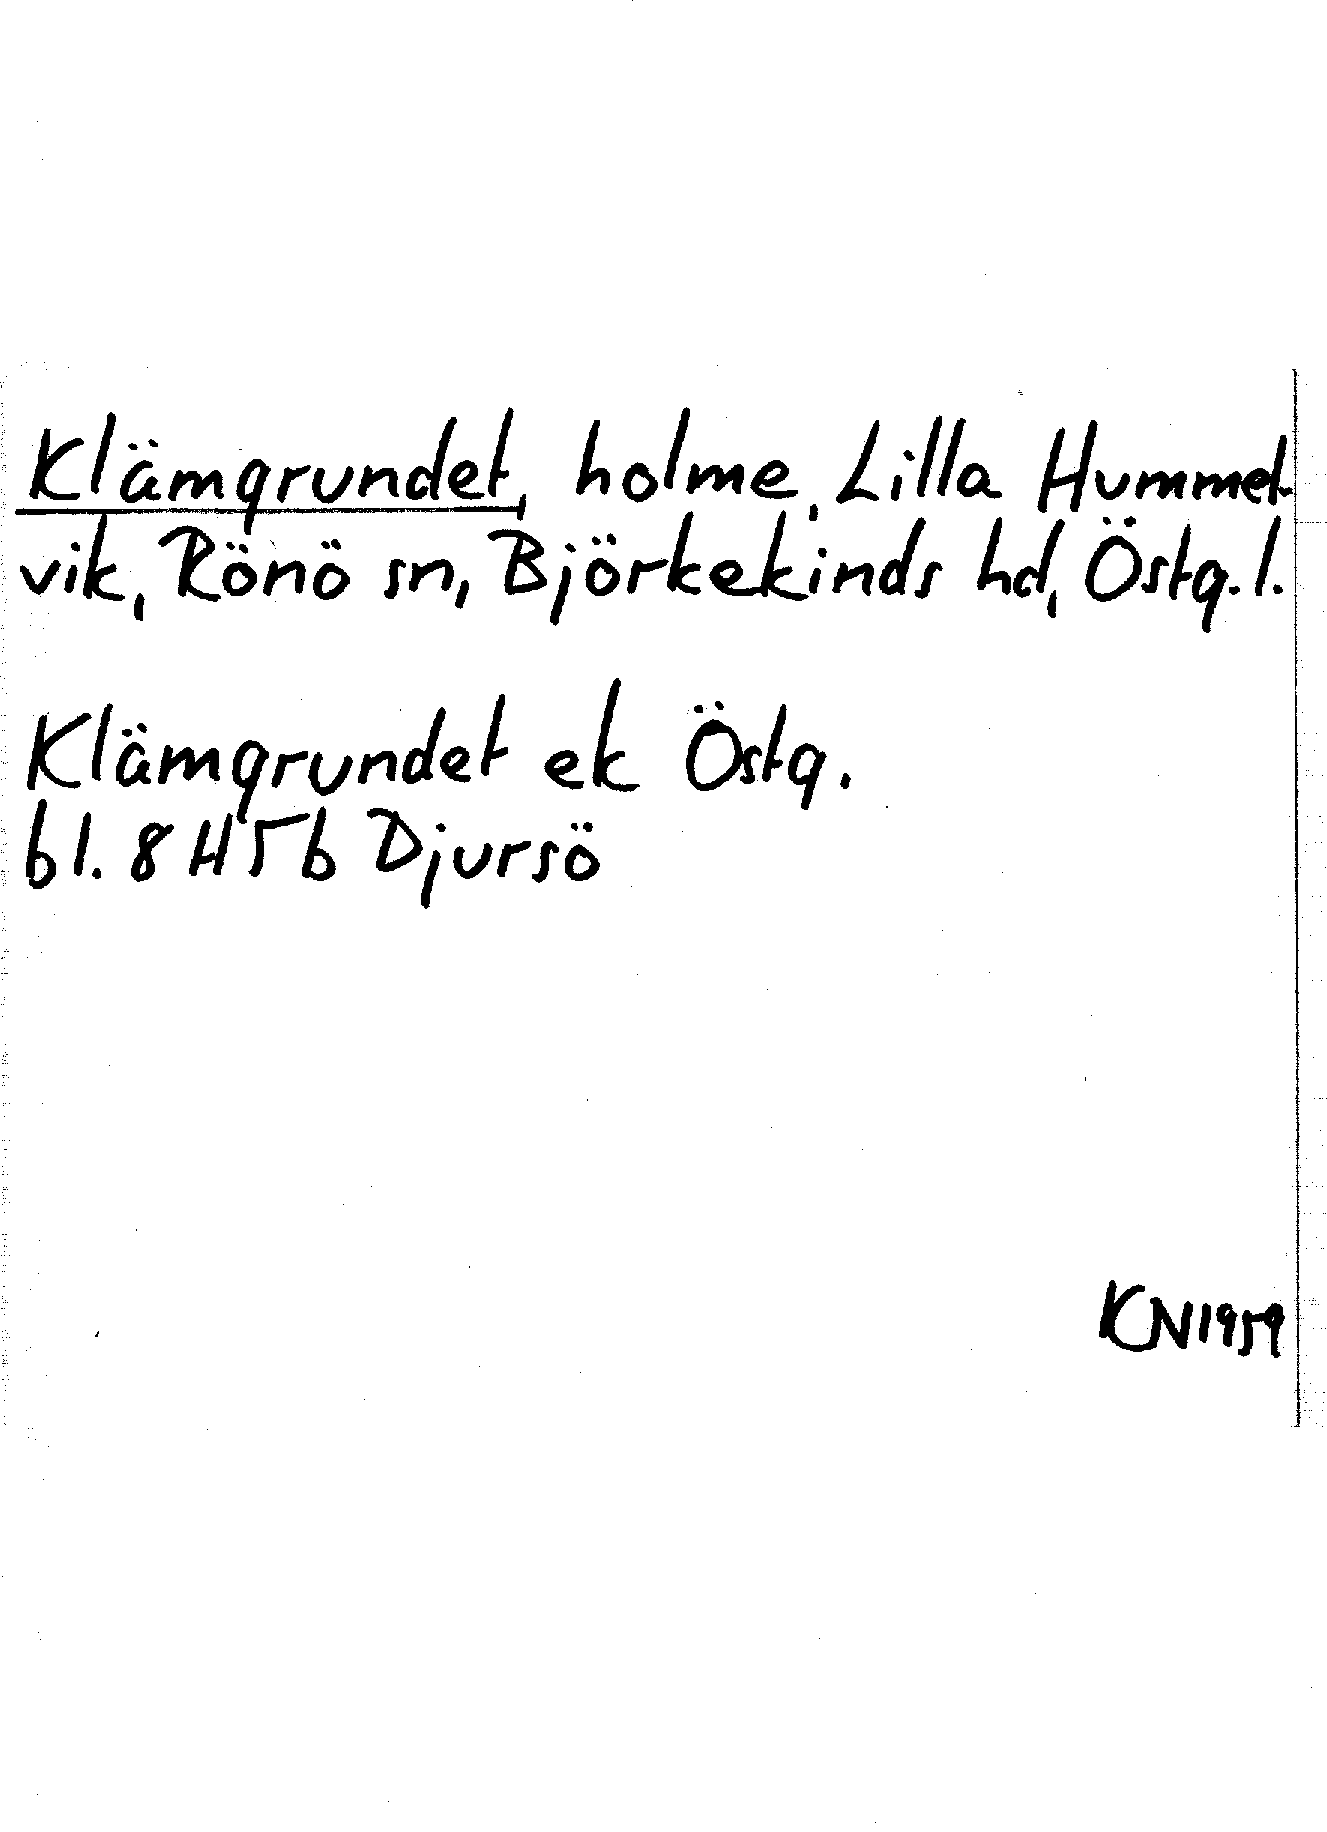 Klämgrundet, holme, Lilla Hummel-
vik, Rönö sn, Björkekinds hd, Östg. l.
Klämgrundet ek Östg.
bl. 8 H5b Djursö
KN1959